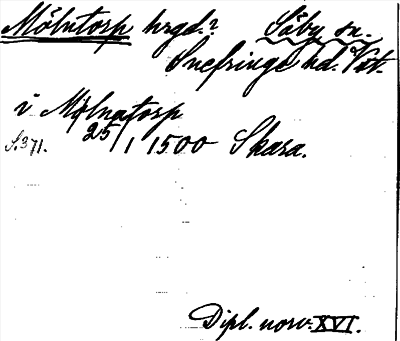 Mölntorp hrgd.? Säby sn.
Snefringe hd. Vstm.
i Mölnatorp
S.371. 25/1 1500 Skara.
Dipl. norv. XVI.